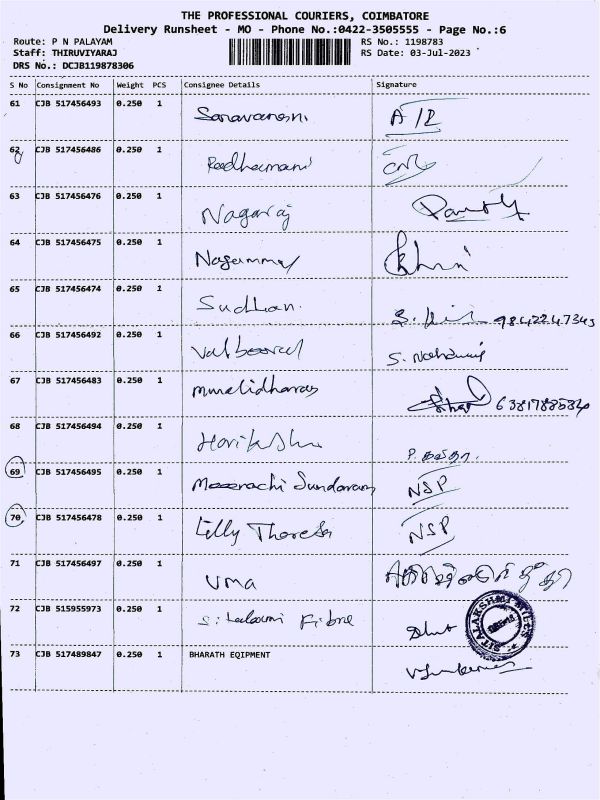 THE PROFESSIONAL COURIERS, COIMBATORE
Delivery Runsheet - MO - Phone No.:0422-3505555 - Page No.:6
Route: P N PALAYAM RS No.: 1198783
Staff: THIRUVIYARAJ RS Date: 03-Jul-2023
DRS No.: DCJB119878306
S No Consignment No Weight PCS Consignee Details Signature
61 CJB 517456493 0.250 1 Saravanan
62 CJB 517456486 0.250 1 Radhamani
63 CJB 517456476 0.250 1 Nagaraj
64 CJB 517456475 0.250 1 Nagammal
65 CJB 517456474 0.250 1 Sudhan 9842247343
66 CJB 517456492 0.250 1
67 CJB 517456483 0.250 1 Muralidharan 6381788584
68 CJB 517456494 0.250 1 P. கவிதா.
69 CJB 517456495 0.250 1 Meenachi Sundaram NSP
70 CJB 517456478 0.250 1 Lilly Theresa NSP
71 CJB 517456497 0.250 1 UMA
72 CJB 515955973 0.250 1 Fibre SITALAKSHMI MILLS
73 CJB 517489847 0.250 1 BHARATH EQIPMENT